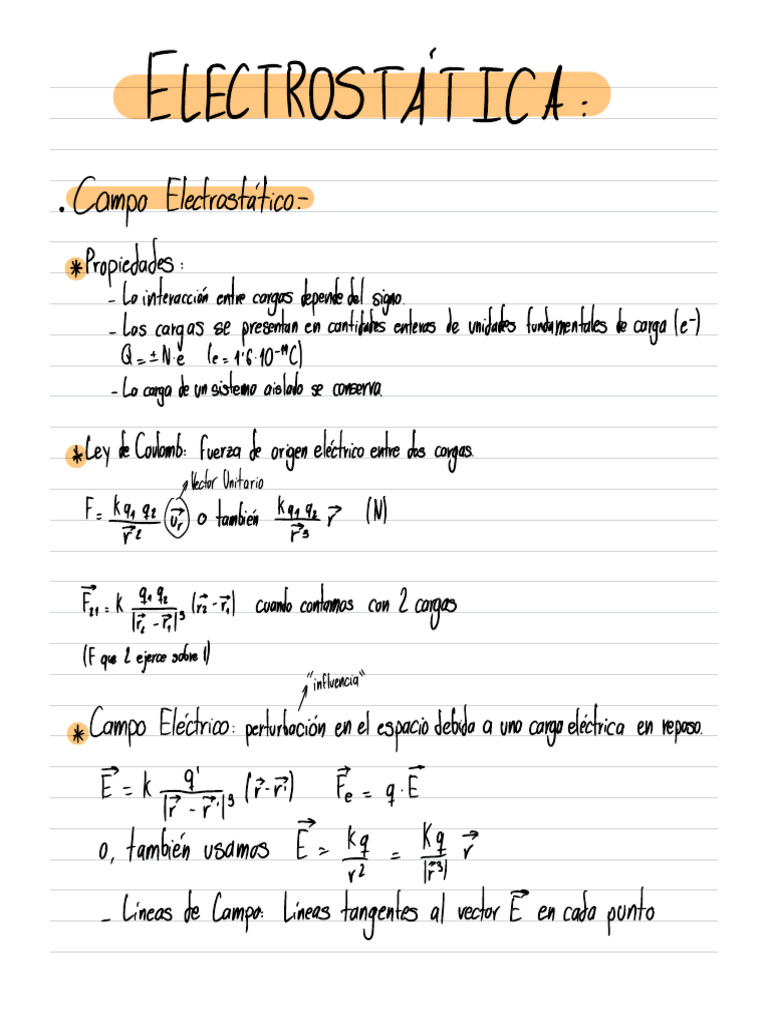 ELECTROSTÁTICA:
. Campo Electrostático:-
* Propiedades:
- La interacción entre cargas depende del signo.
- Las cargas se presentan en cantidades enteras de unidades fundamentales de carga (e⁻)
Q = ± N·e (e = 1'6·10⁻¹⁹C)
- La carga de un sistema aislado se conserva.
* Ley de Coulomb: fuerza de origen eléctrico entre dos cargas.
Vector Unitario
F = k q₁ q₂ / r⃗² (u⃗ᵣ) o también k q₁ q₂ / r⃗³ r⃗ (N)
F⃗₂₁ = k q₁ q₂ / |r⃗₂ - r⃗₁|³ (r⃗₂ - r⃗₁) cuando contamos con 2 cargas
(F que 2 ejerce sobre 1)
"influencia"
* Campo Eléctrico: perturbación en el espacio debida a una carga eléctrica en reposo.
E⃗ = k q' / |r⃗ - r⃗'|³ (r⃗ - r⃗') F⃗e = q · E⃗
o, también usamos E⃗ = kq / r² = Kq / |r⃗³| r⃗
- Líneas de Campo: Líneas tangentes al vector E⃗ en cada punto